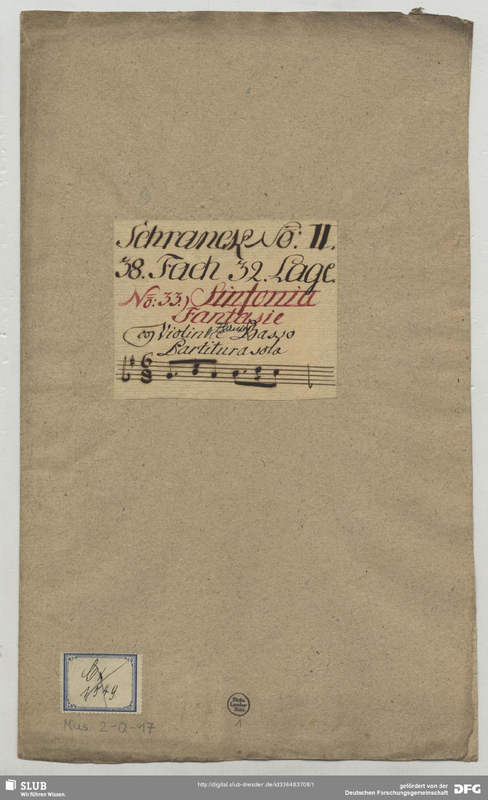 Schranck No: II.
38. Fach 32. Lage.
No: 33.) Sinfonia
Fantasie
co Violini e Basso
Partitura sola
6
8
Mus. 2-Q-17
1
SLUB
Wir führen Wissen.
http://digital.slub-dresden.de/id336483708/1
gefördert von der
Deutschen Forschungsgemeinschaft
DFG